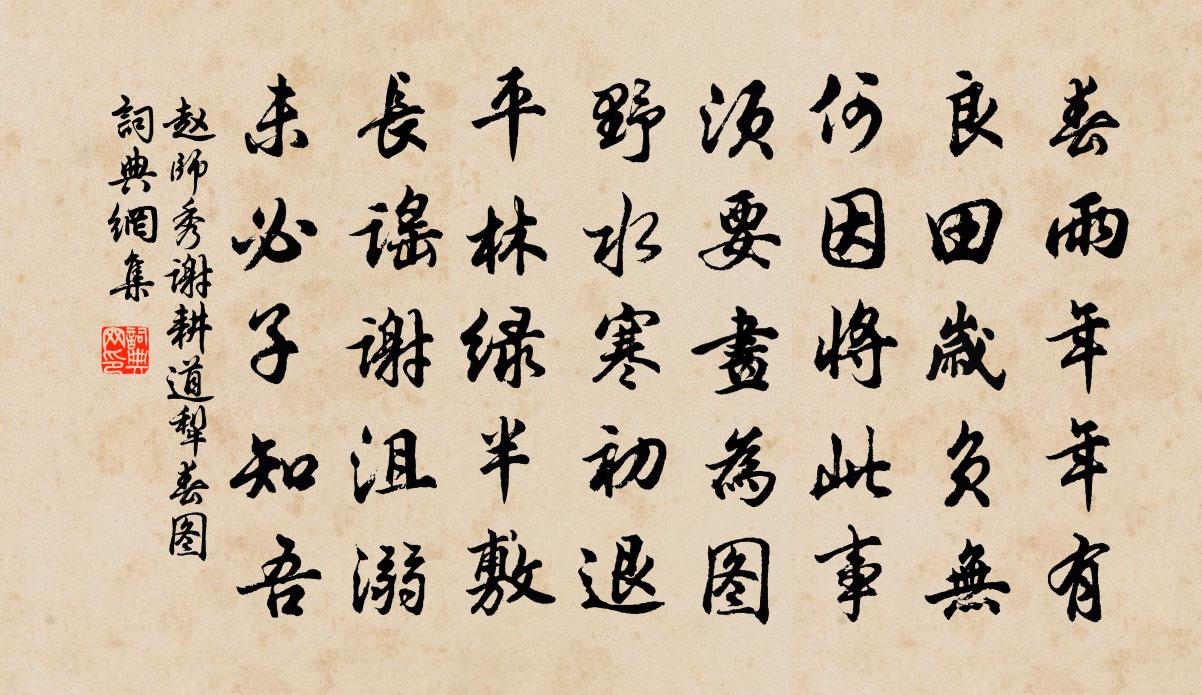 春雨年年有
良田歲负無
何因將此事
須要畫為图
野水寒初退
平林绿半敷
長謠谢沮溺
未必子知吾
赵師秀谢耕道犁春图
詞典網集
詞典网印